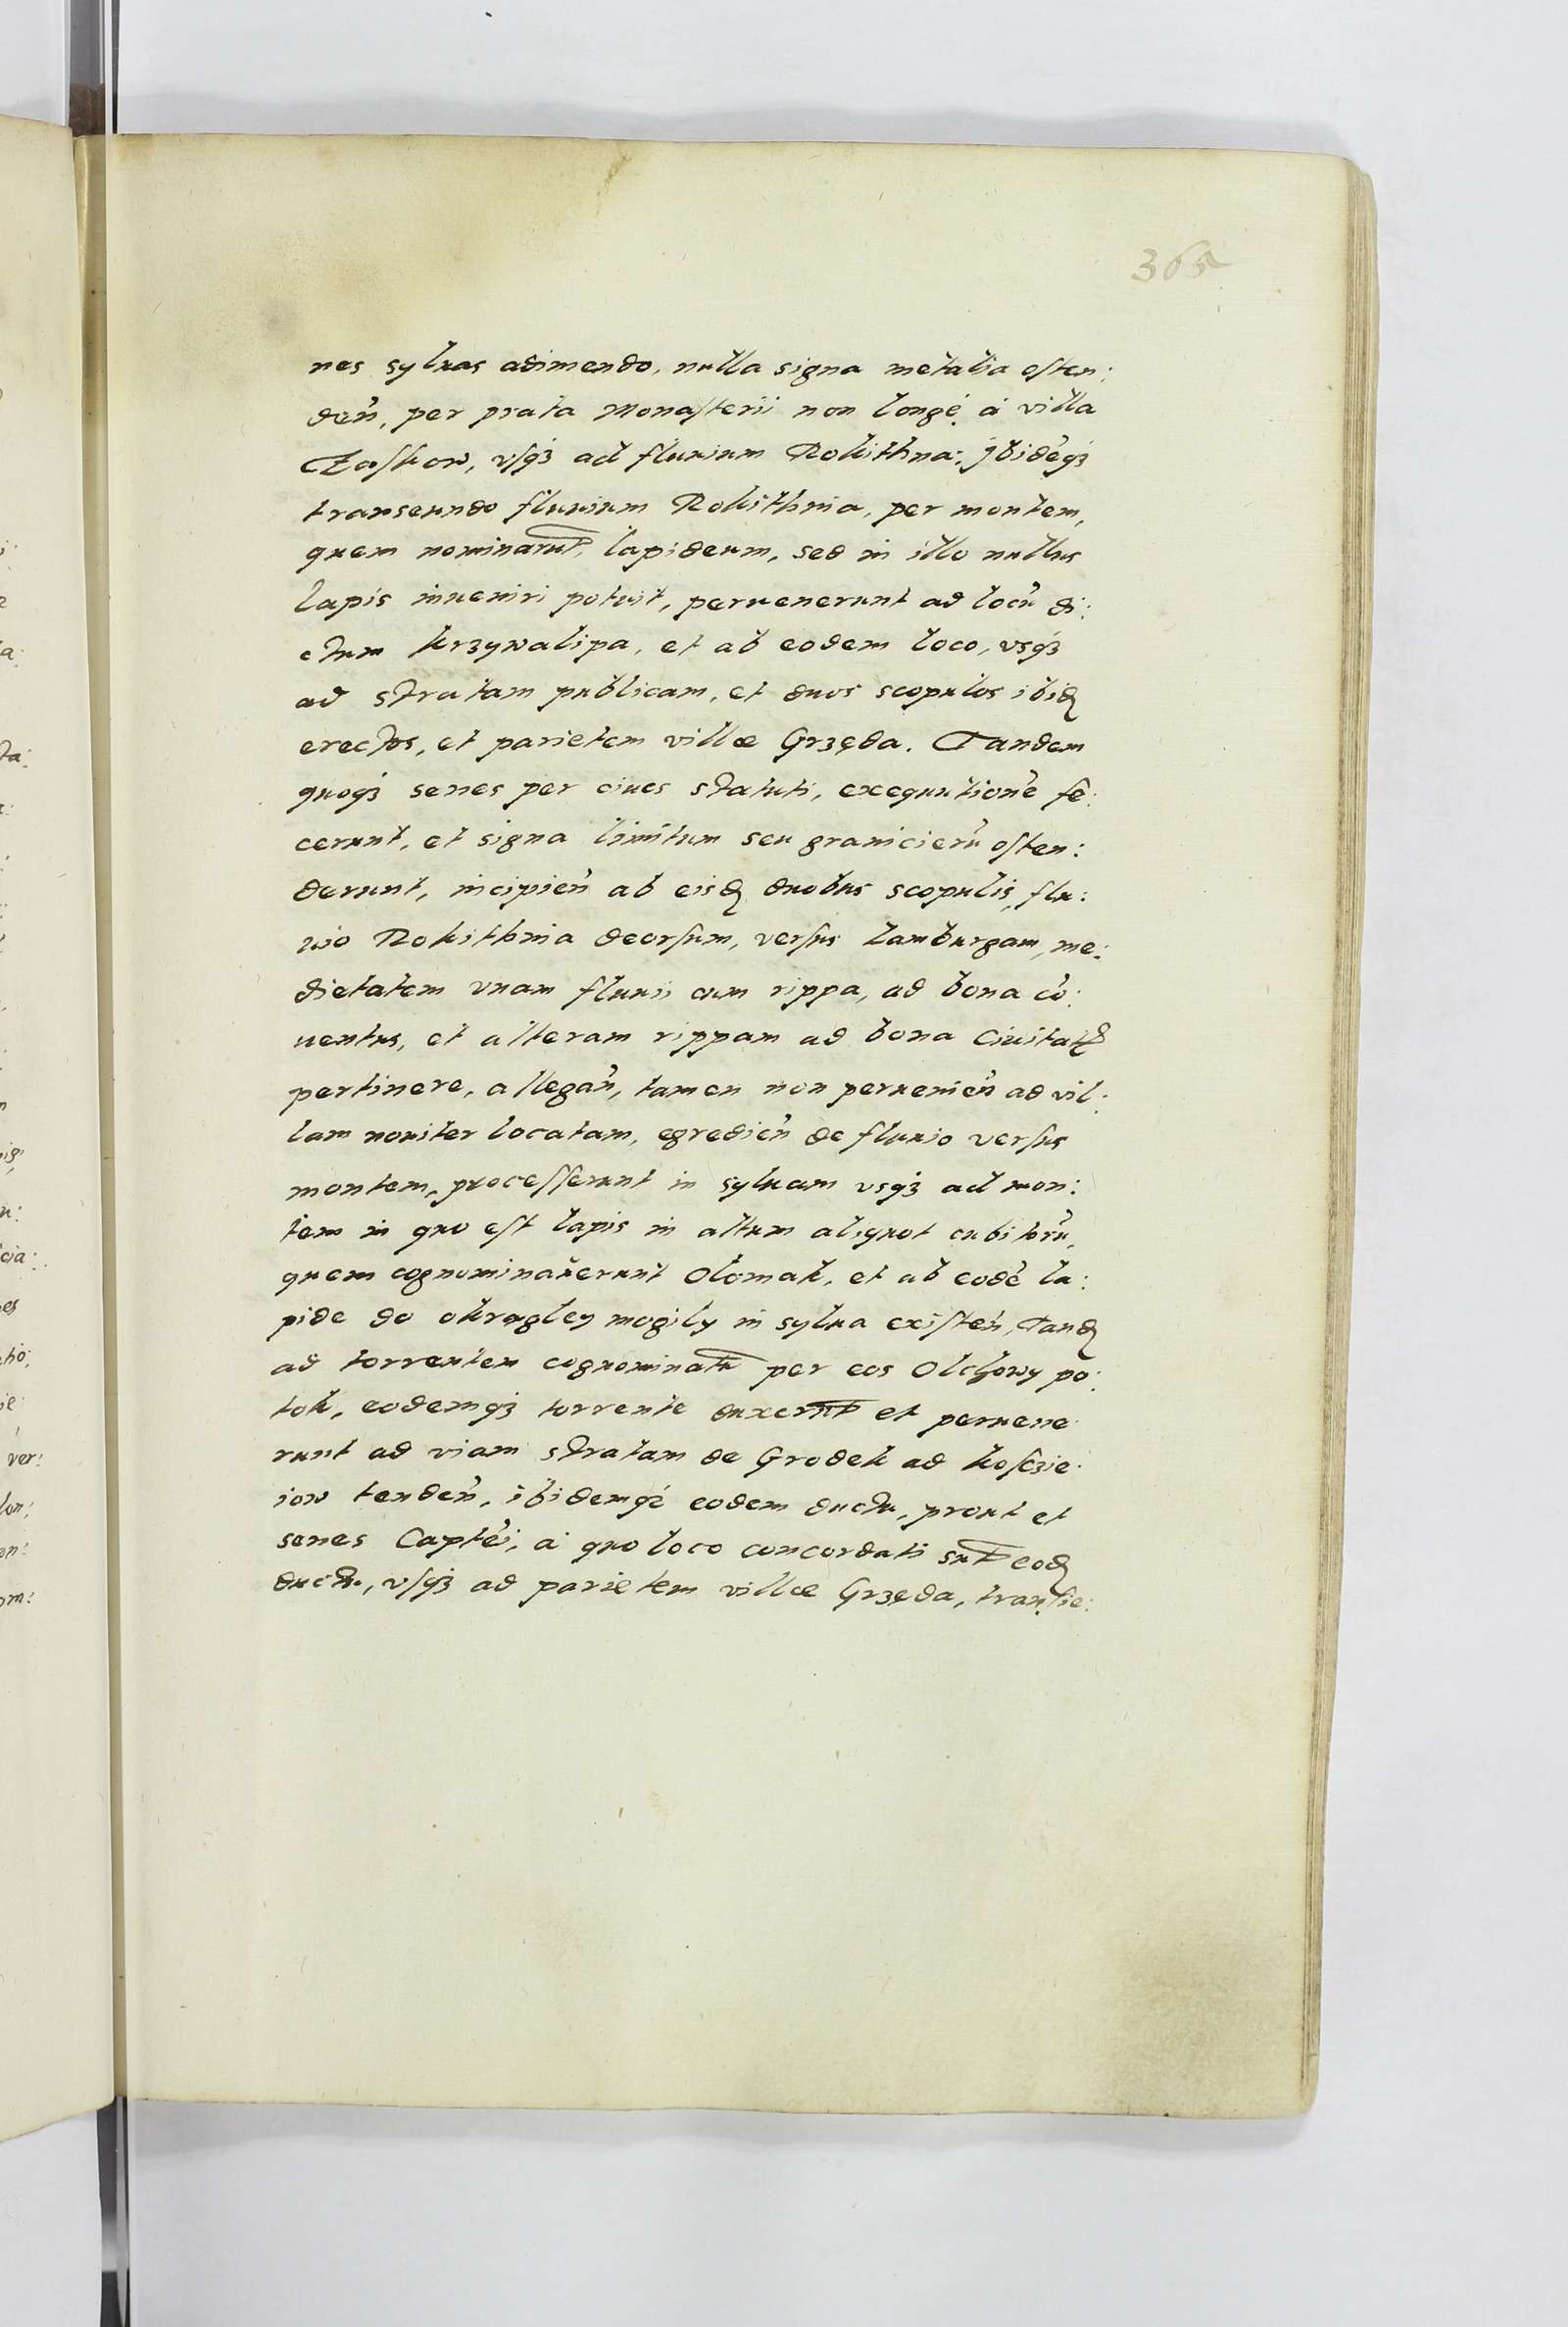 365
nes syluas adimendo, nulla signa metalia osten:
deñ, per prata Monasterii non longè à villa
Zaskow, vsq₃ ad fluuium Rokithna:, jbidēq₃
transeundo fluuium Rokithnia, per montem,
quem nominarūt, lapideum, sed in illo nullus
lapis inueniri potuit, peruenerunt ad locū di:
ctum krzywalipa, et ab eodem loco, vsq₃
ad stratam publicam, et duos scopulos ibiđ
erectos, et parietem villæ Grzęda. Tandem
quoq₃ senes per ciues statuti, exequutionē fe:
cerunt, et signa limitum seu granicierū osten:
derunt, incipieñ ab eisđ duobus scopulis, flu:
uio Rokithnia deorsum, versus Lamburgam, me:
dietatem vnam fluuii cum rippa, ad bona cō:
uentus, et alteram rippam ad bona Ciuitatꝭ
pertinere, allegañ, tamen non peruenieñ ad vil:
lam nouiter locatam, egredieñ de fluuio versus
montem, processerunt in syluam vsq₃ ad mon:
tem in quo est lapis in altum aliquot cubitorū,
quem cognominauerunt Olomak, et ab eodē la:
pide do okragley mogily in sylua existeñ, Tanđ
ad torrentem cognominatū per eos Olchowy po:
tok, eodemq₃ torrente duxerūt et peruene
runt ad viam stratam de Grodek ad kosczie:
iow tendeñ, ibidemq₃ eodem ductu, prout et
senes Captei, à quo loco concordati sūt eođ
ductu, vsq₃ ad parietem villæ Grzęda, transie: